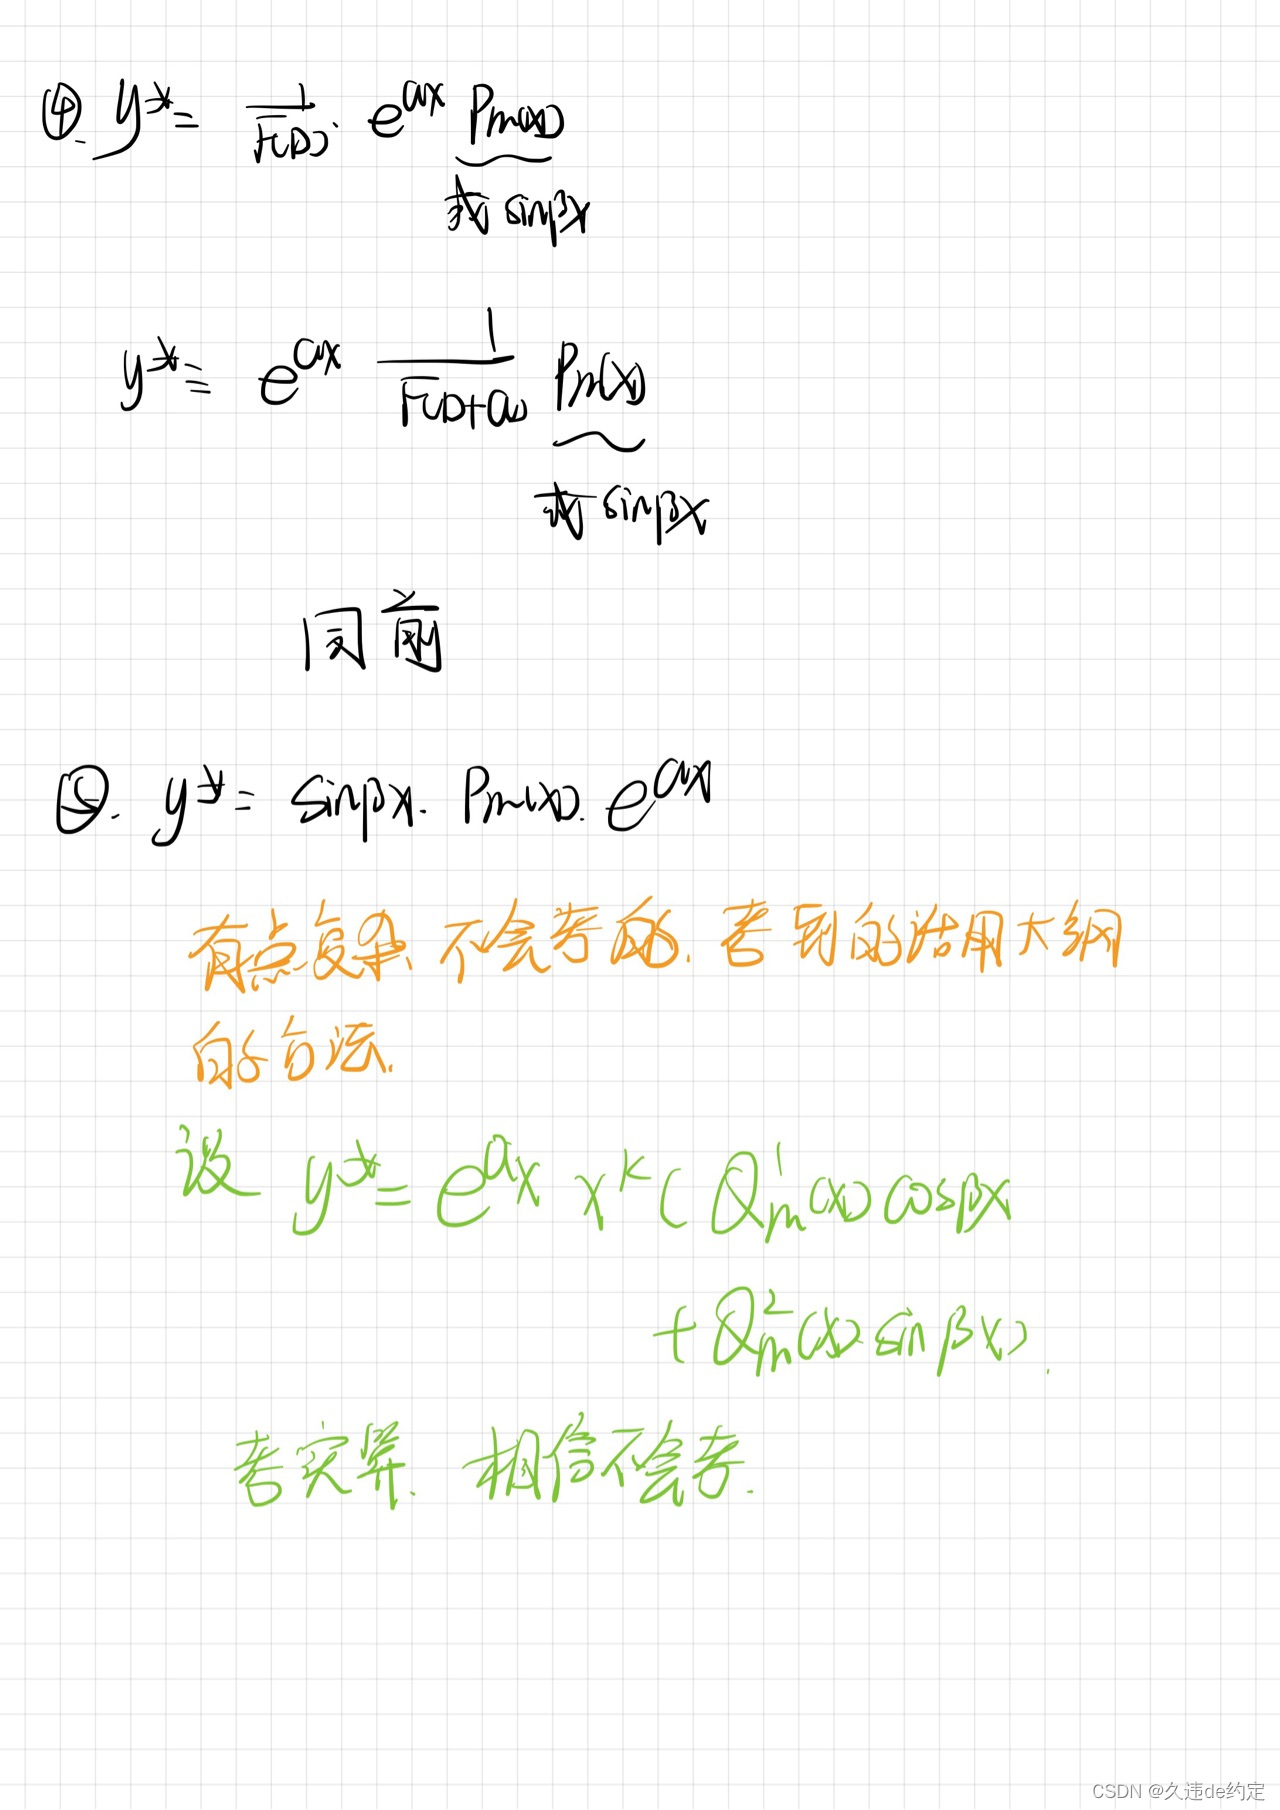 ④. y* = 1/F(D) · e^{ax} Pm(x)
或 sinβx
y* = e^{ax} 1/F(D+a) Pm(x)
或 sinβx
同前
⑤. y* = sinβx · Pm(x) · e^{ax}
有点复杂, 不会考的. 考到的话用大纲
的方法.
设 y* = e^{ax} x^k ( Q_m^1(x) cosβx
+ Q_m^2(x) sinβx ).
考实算. 相信不会考.
CSDN @久违de约定